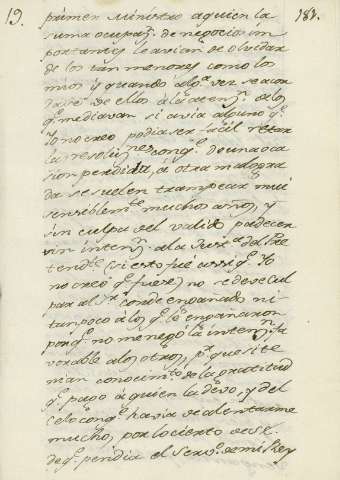 19.
181.
primer Ministro aquien la
suma ocupaz.ⁿ de negocios im
portantes le avian de olvidar
de los tan menores como los
mios y quando alg.ª vez se acor
dase de ellos a la atenz.ⁿ a los
q.ᵉ mediavan si avia alguno q.ᵉ
Yo no creo podia ser facil retar
las resoluz.ⁿᵉˢ con q.ᵉ de una oca
sion perdida, á otra malogra
da se suelen trampear mui
sensiblem.ᵗᵉ muchos años, y
sin culpa del valido padecer
sin intenz.ⁿ a la Just.ª del Pre
tend.ᵗᵉ (si esto fué assi q.ᵉ Yo
no creo q.ᵉ fuese) no se deve cul
par al S.ʳ conde engañado ni
tampoco á los q.ᵉ le engañaron
porq.ᵉ no me negó la intenz.ⁿ fa
vorable a los otros, p.ʳ que si te
nian conocim.ᵗᵒ de la gratitud
q.ᵉ pago a quien la devo, y del
celo con q.ᵉ havia de alentarme
mucho, por lo cierto es se
de q.ᵉ perdia el serv.º de mi Rey